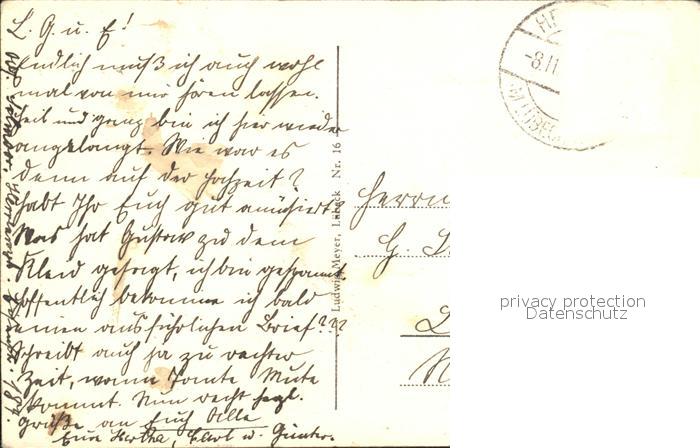 L. G. u. E!
Endlich muß ich auch wohl
mal von mir hören lassen.
Heil und ganz bin ich hier wieder
angelangt. Wie war es
denn auf der Hochzeit?
Habt Ihr Euch gut amüsiert?
Was hat Gustav zu dem
Kleid gesagt, ich bin gespannt.
Hoffentlich bekomme ich bald
einen ausführlichen Brief???
Schreibt auch ja zu rechter
Zeit, wann Tante Mute
kommt. Nun recht herzl.
Grüße an Euch Alle
Eure Hertha, u. Günter.
Ludwig Meyer, Lübeck Nr. 16
-8.11
Herrn
G.
privacy protection
Datenschutz